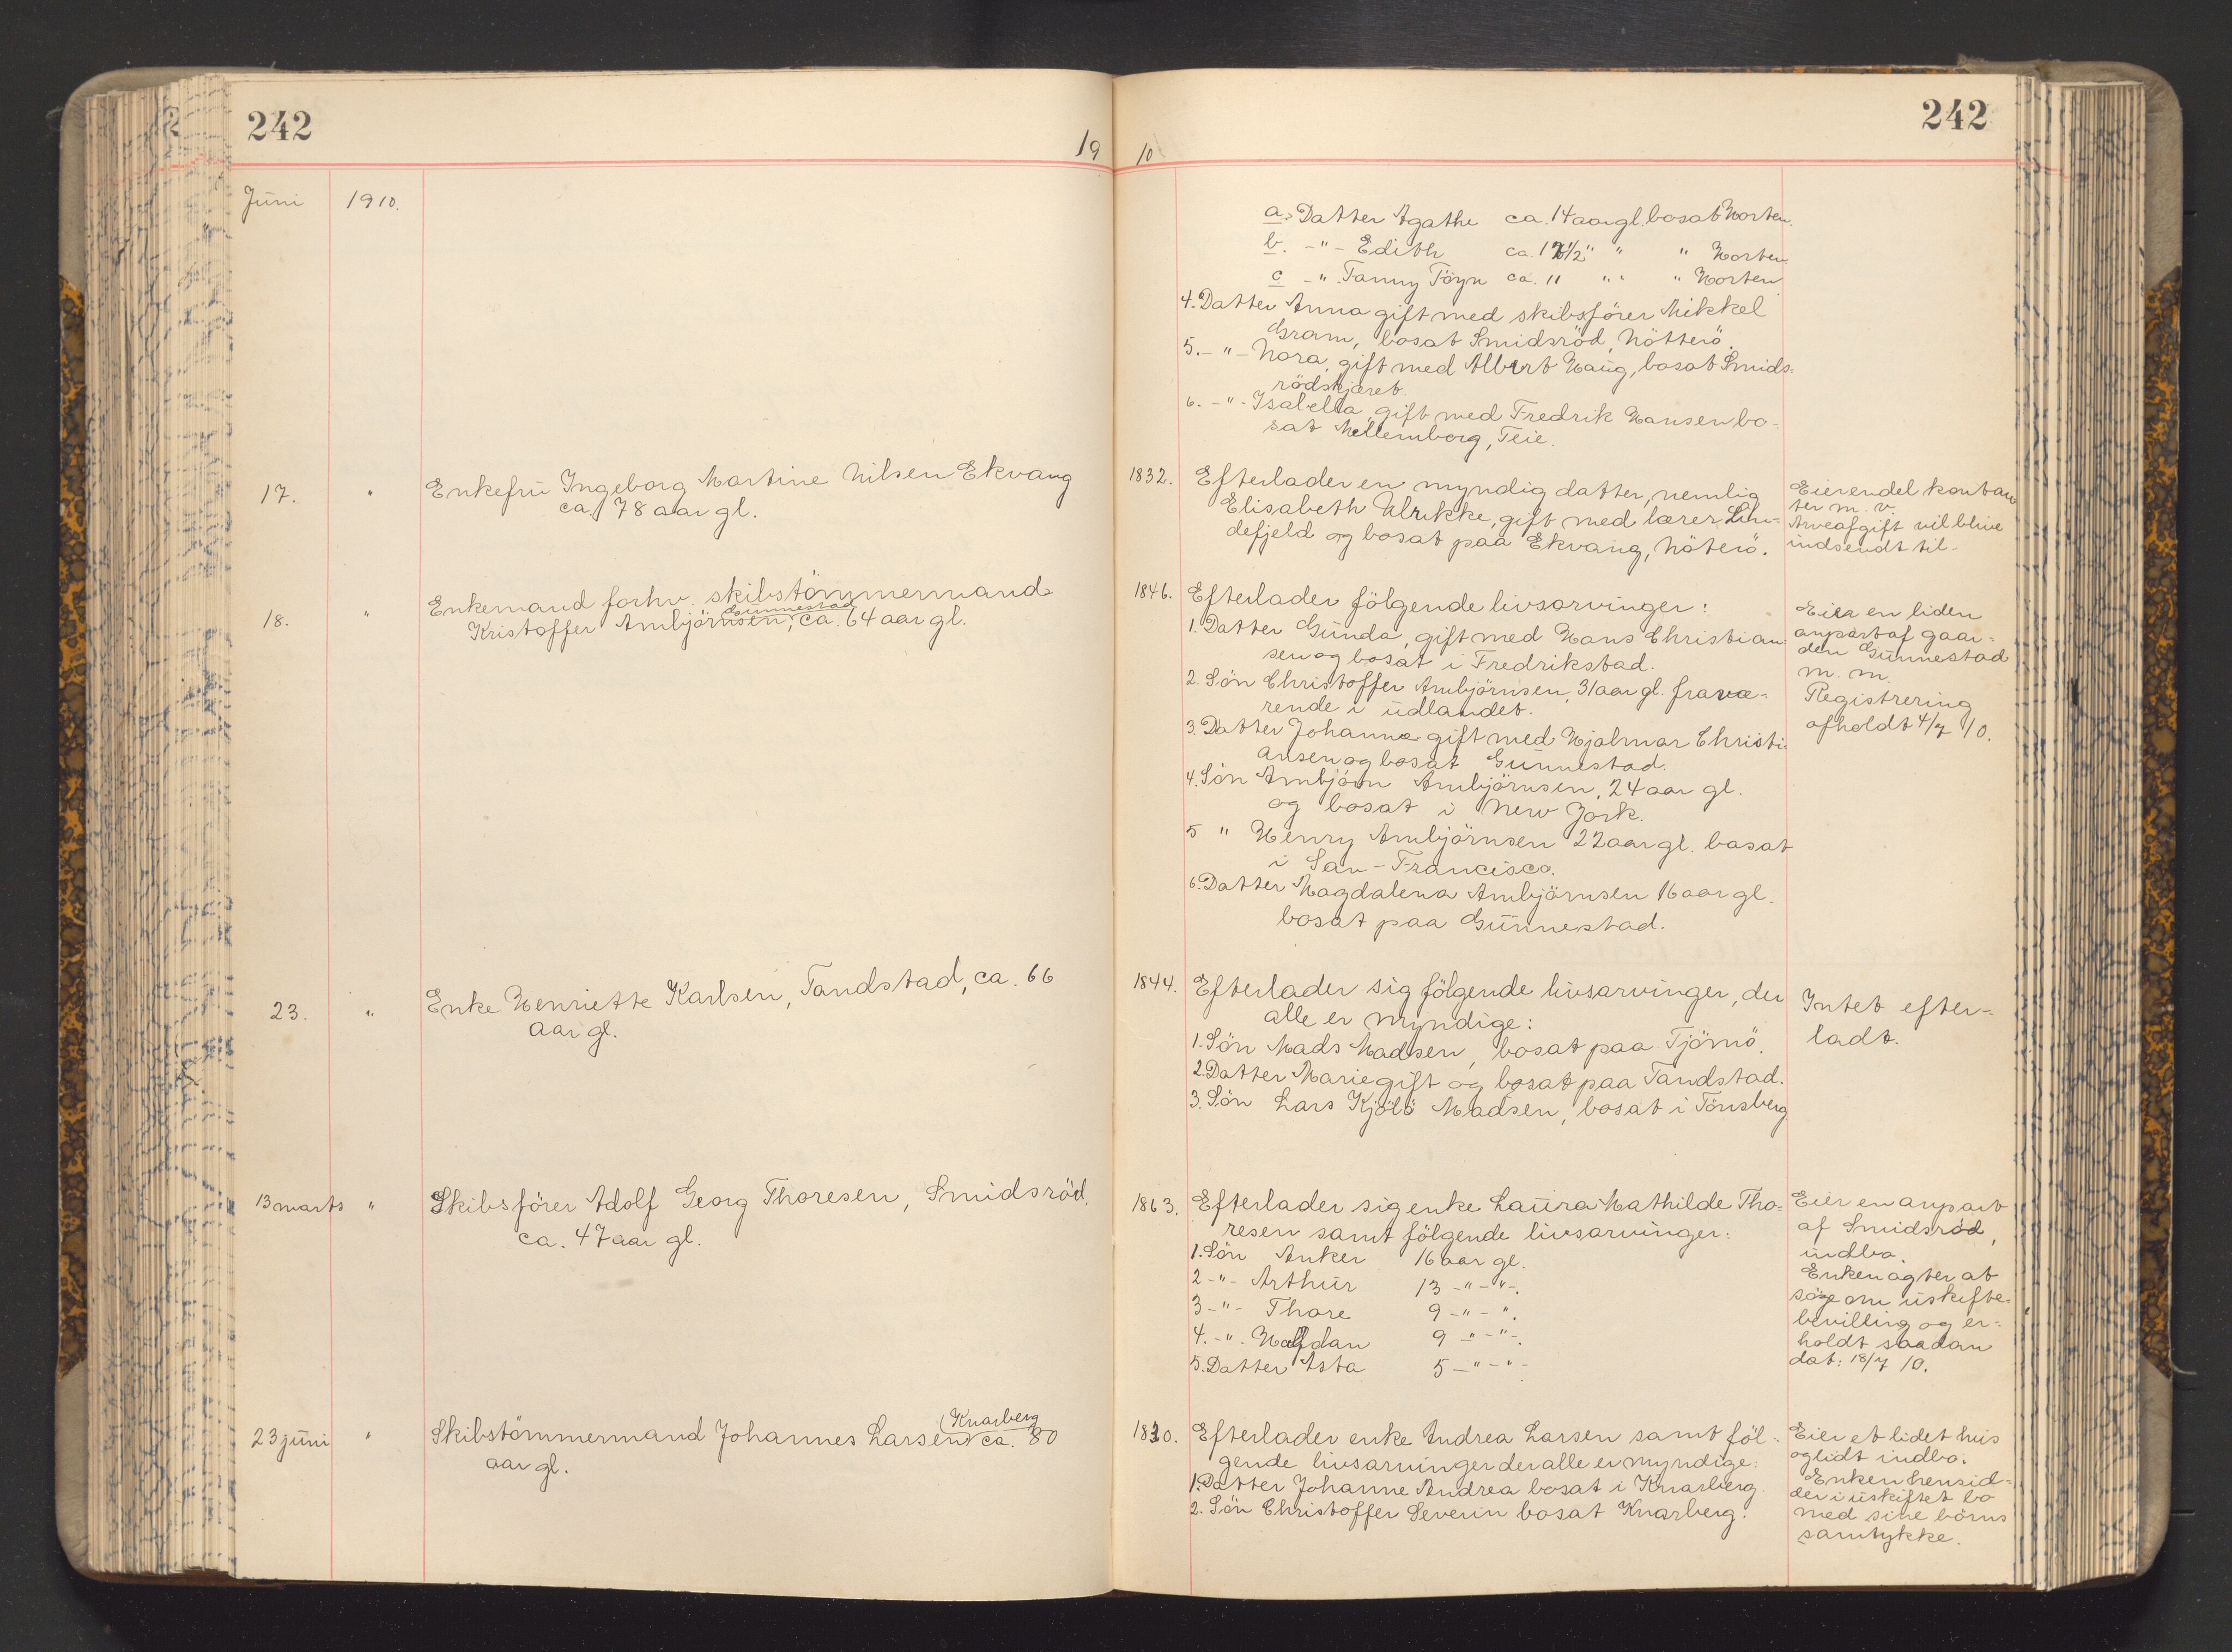 242
242
19 10
Juni 1910.
a. Datter Agathe ca. 14 aar gl. bosat Horten.
b. -"- Edith ca. 12 1/2 " " " Horten
c -" Fanny Töyn ca. 11 " " " Horten
4. Datter Anna gift med skibsförer Mikkel
Gram, bosat Smidsröd, Nötterö.
5. -"- Nora, gift med Albert Haug, bosat Smids-
rödskjæret.
6. -"- Isabella, gift med Fredrik Hansen bo-
sat Mellemborg, Teie.
17. " Enkefru Ingeborg Martine Nilsen Ekvang
ca. 78 aar gl.
1832. Efterlader en myndig datter, nemlig
Elisabeth Ulrikke, gift med lærer Lin-
defjeld og bosat paa Ekvang, Nöterö.
Eierendel kontan
ter m. v.
Arveafgift vil blive
indsendt til-
18. " Enkemand forhv. skibstömmermand
Gunnestad
Kristoffer Ambjörnsen, ca. 64 aar gl.
1846. Efterlader fölgende livsarvinger:
1. Datter Gunda, gift med Hans Christian
sen og bosat i Fredrikstad.
2. Sön Christoffer Ambjörnsen, 31 aar gl. fravæ-
rende i udlandet.
3. Datter Johanna gift med Hjalmar Christi-
ansen og bosat Gunnestad.
4. Sön Ambjörn Ambjörnsen, 24 aar gl.
og bosat i New York.
5 " Henry Ambjörnsen 22 aar gl. bosat
i San-Francisco.
6. Datter Magdalena Ambjörnsen 16 aar gl.
bosat paa Gunnestad.
Eier en liden
anpart af gaar-
den Gunnestad
m. m.
Registrering
afholdt 4/7 10.
23. " Enke Henriette Karlsen, Tandstad, ca. 66
aar gl.
1844. Efterlader sig fölgende livsarvinger, der
alle er myndige:
1. Sön Mads Madsen, bosat paa Tjömö.
2. Datter Marie gift og bosat paa Tandstad.
3. Sön Lars Kjölö Madsen, bosat i Tönsberg
Intet efter-
ladt.
13 marts " Skibsförer Adolf Georg Thoresen, Smidsröd,
ca. 47 aar gl.
1863. Efterlader sig enke Laura Mathilde Tho-
resen samt fölgende livsarvinger:
1. Sön Anker 16 aar gl.
2 -"- Arthur 13 -"-"-.
3 -"- Thore 9 -"-".
4. -"- Halfdan 9 -"-"-.
5. Datter Asta 5 -"-"-
Eier en anpart
af Smidsröd,
indbo.
Enken agter at
söge om uskifte-
bevilling og er-
holdt saadan
dat: 18/7 10.
23 juni " Skibstömmermand Johannes Larsen ca. 80
Knarberg
aar gl.
1830. Efterlader enke Andrea Larsen samt föl-
gende livsarvinger der alle er myndige:
1. Datter Johanne Andrea bosat i Knarberg.
2. Sön Christoffer Severin bosat Knarberg.
Eier et lidet hus
og lidt indbo.
Enken hensid-
der i uskiftet bo
med sine börns
samtykke.